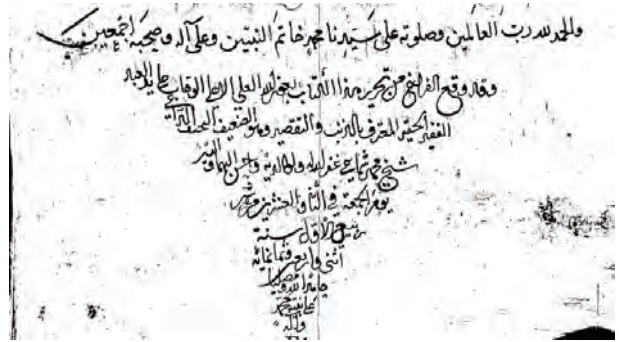 والحمد لله رب العالمين وصلوته على سيدنا محمد خاتم النبيين وعلى آله وصحبه اجمعين
وقد وقع الفراغ من تحرير هذا الكتاب بعون الله العلي الوهاب على يد العبد
الفقير الحقير المعترف بالذنب والتقصير وهو الضعيف النحيف
شيخ محمد غفر الله له ولوالديه واحسن اليهما واليه
يوم الجمعة في الثاني والعشرين من شهر
ربيع الاول سنة
اثنى واربع وثمانمائة
حامدا لله ومصليا
على نبيه محمد
وآله